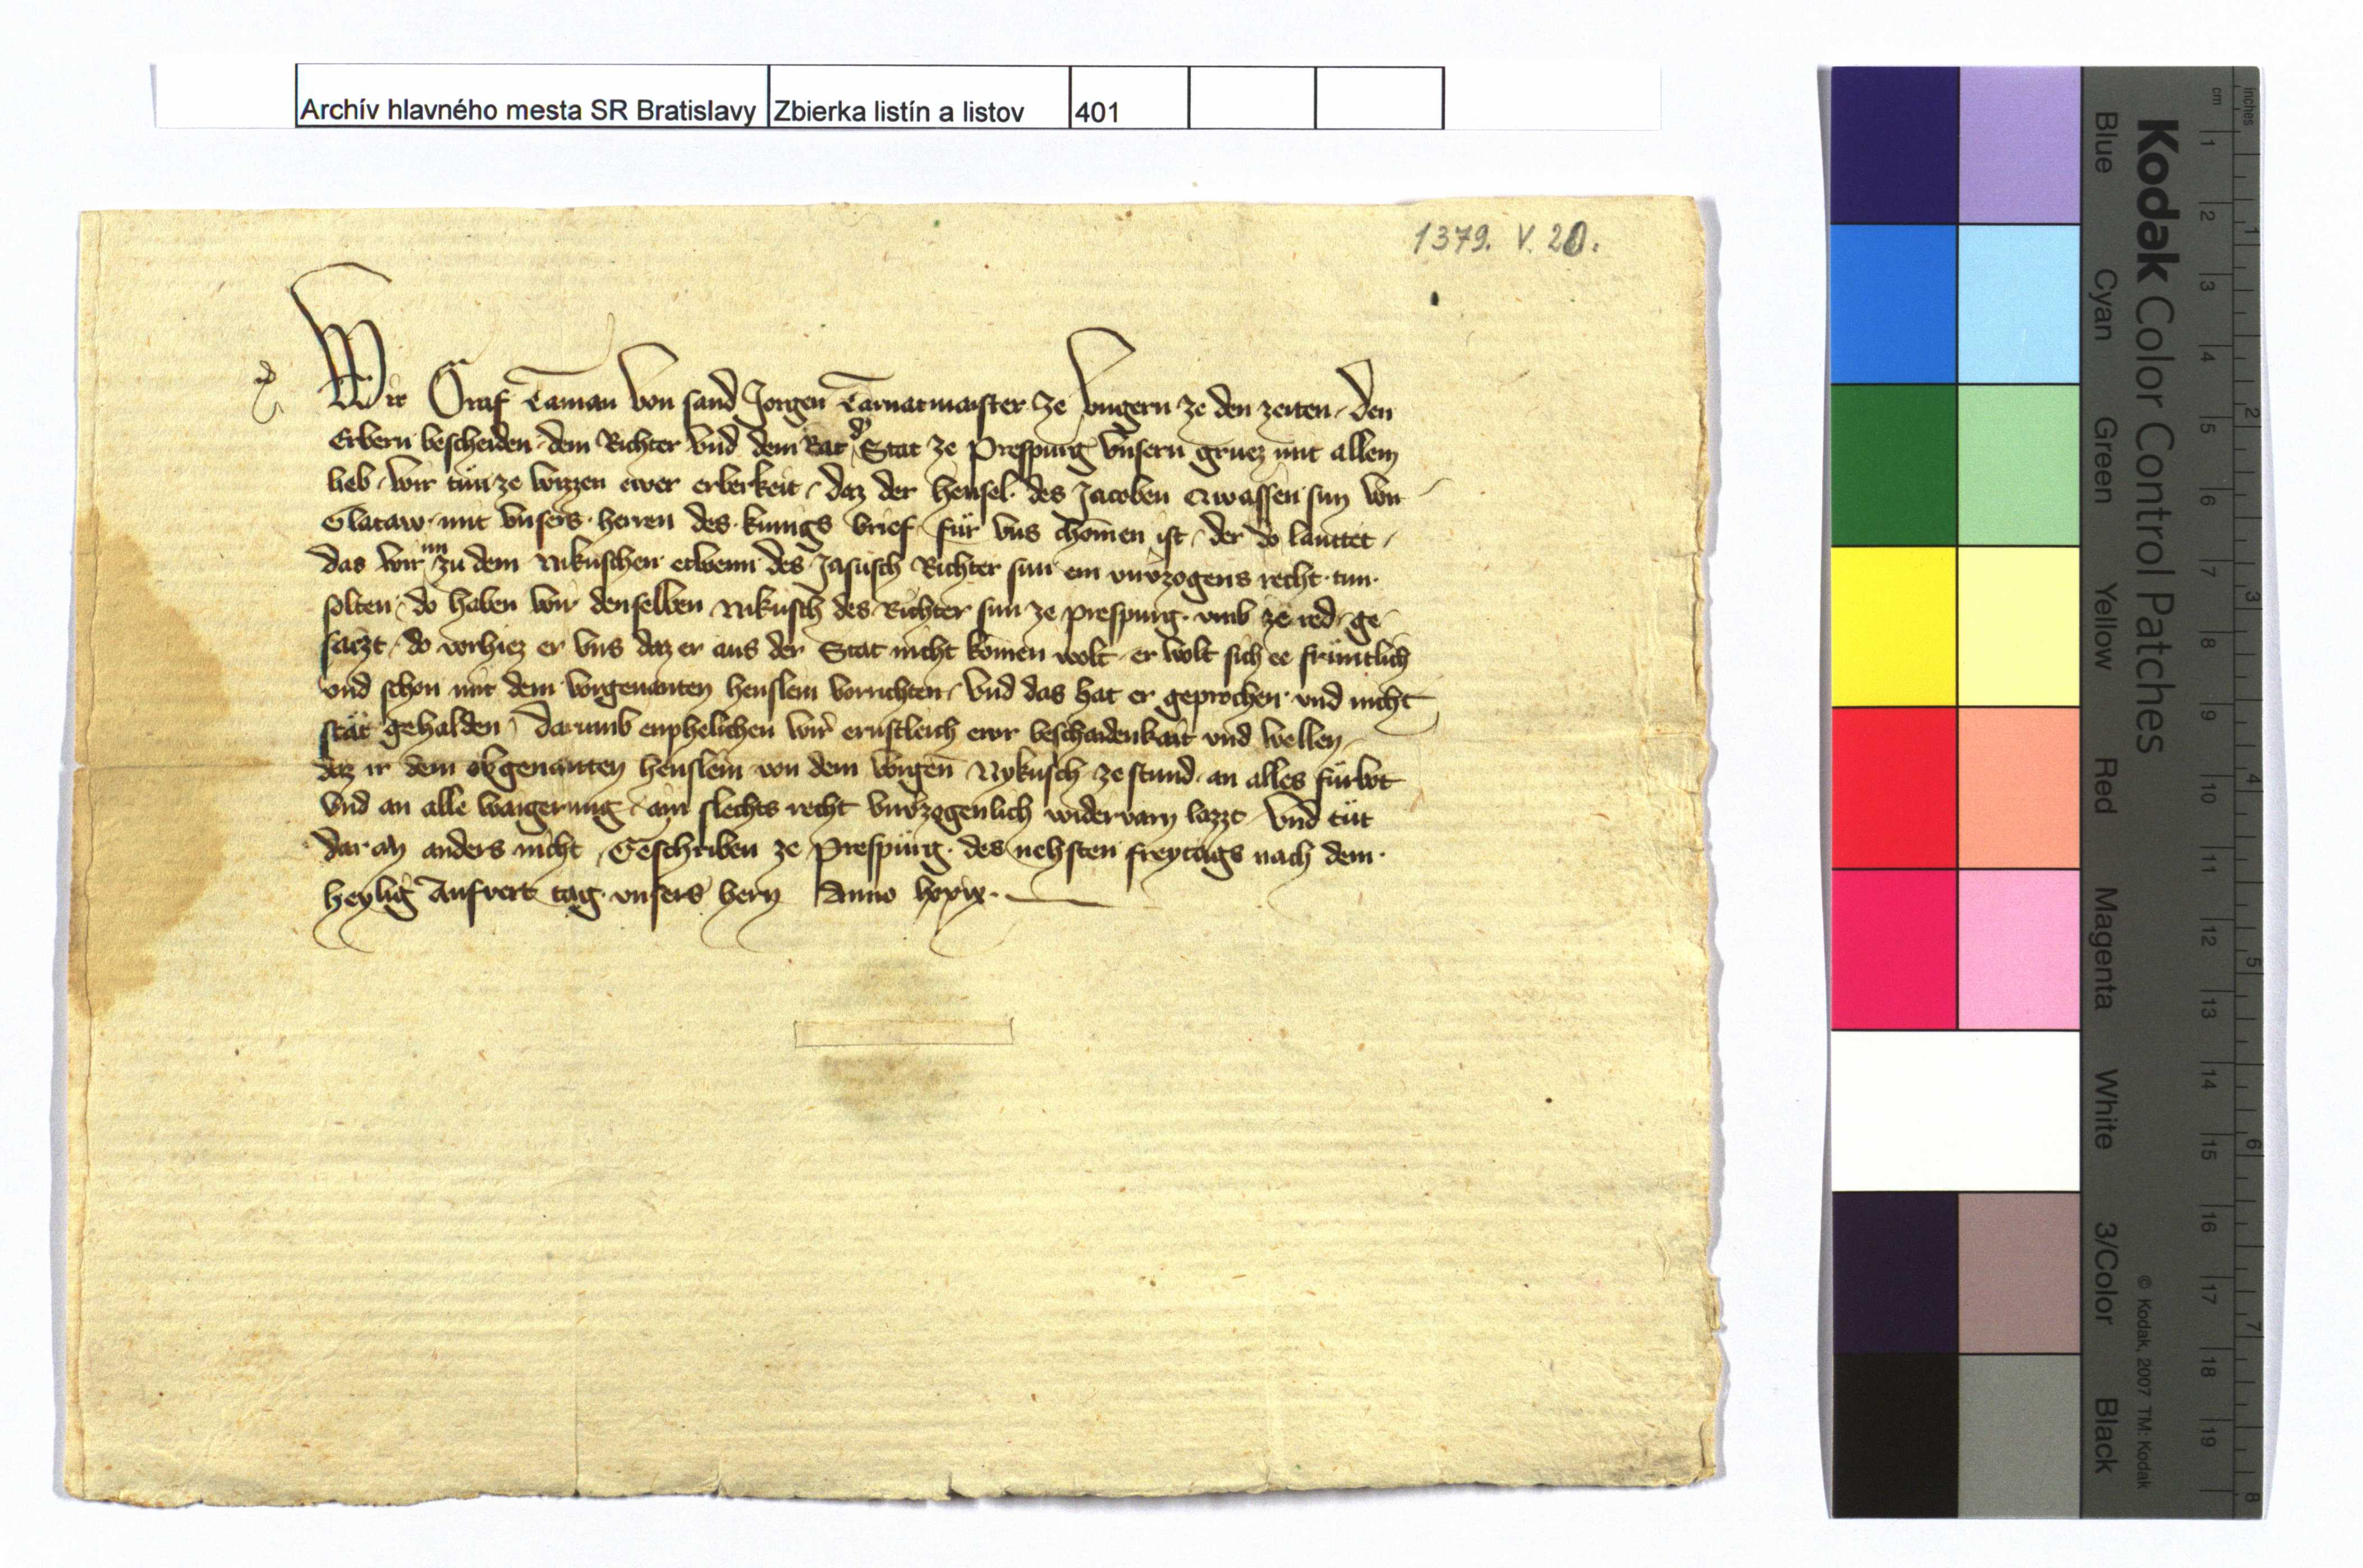 Archív hlavného mesta SR Bratislavy Zbierka listín a listov 401
1379. V. 20.
Wir Graf Taman von sand Jorgen Tarnarmaister ze vngern ze den zeiten, den
Erbern bescheiden dem Richter vnd dem Rat der Stat ze Prespurg vnsern gruez mit allem
lieb, wir tun ze wizzen ewer erberkeit, daz der Hensel des Jacoben sun von
mit vnsers herren des kunigs brief für vns chomen ist, der do lauttet,
das wir im zu dem Nikuschen etwenn des Jasusch Richter sun ein vnvzogens recht tun
solten, do haben wir denselben Nikusch des Richter sun ze prespurg vmb ze red ge
saczt, do vorhiez er vns daz er aus der Stat nicht komen wolt er wolt sich ee früntlich
vnd schon mit dem vorgenanten Henslein vorrichten, vnd das hat er geprochen vnd nicht
stät gehalden, Darumb enphelichen wir ernstleich ewr beschaidenkait vnd wellen,
daz ir dem obgenanten Henslein von dem vorgen Nykusch ze stund an alles fürbot
vnd an alle waigerung, ain slechts recht vnvzogenlich widervarn lazzt vnd tüt
dar an anders nicht, Geschriben ze Prespürg des nehsten freytags nach dem
heylig Aufvert tag vnsers hern Anno lxxix
Kodak Color Control Patches
Blue Cyan Green Yellow Red Magenta White 3/Color Black
© Kodak, 2007 TM: Kodak
cm 1 2 3 4 5 6 7 8 9 10 11 12 13 14 15 16 17 18 19
inches 1 2 3 4 5 6 7 8